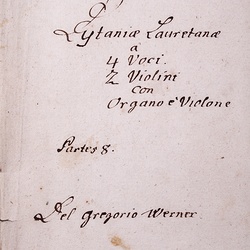 Lytaniæ Lauretanæ
a
4 Voci.
2 Violini
con
Organo è Violone
Partes 8.
Del Gregorio Werner